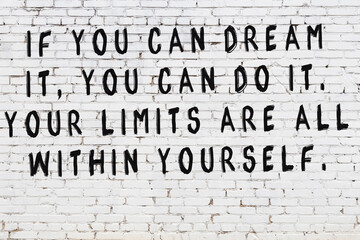 IF YOU CAN DREAM
IT, YOU CAN DO IT.
YOUR LIMITS ARE ALL
WITHIN YOURSELF.